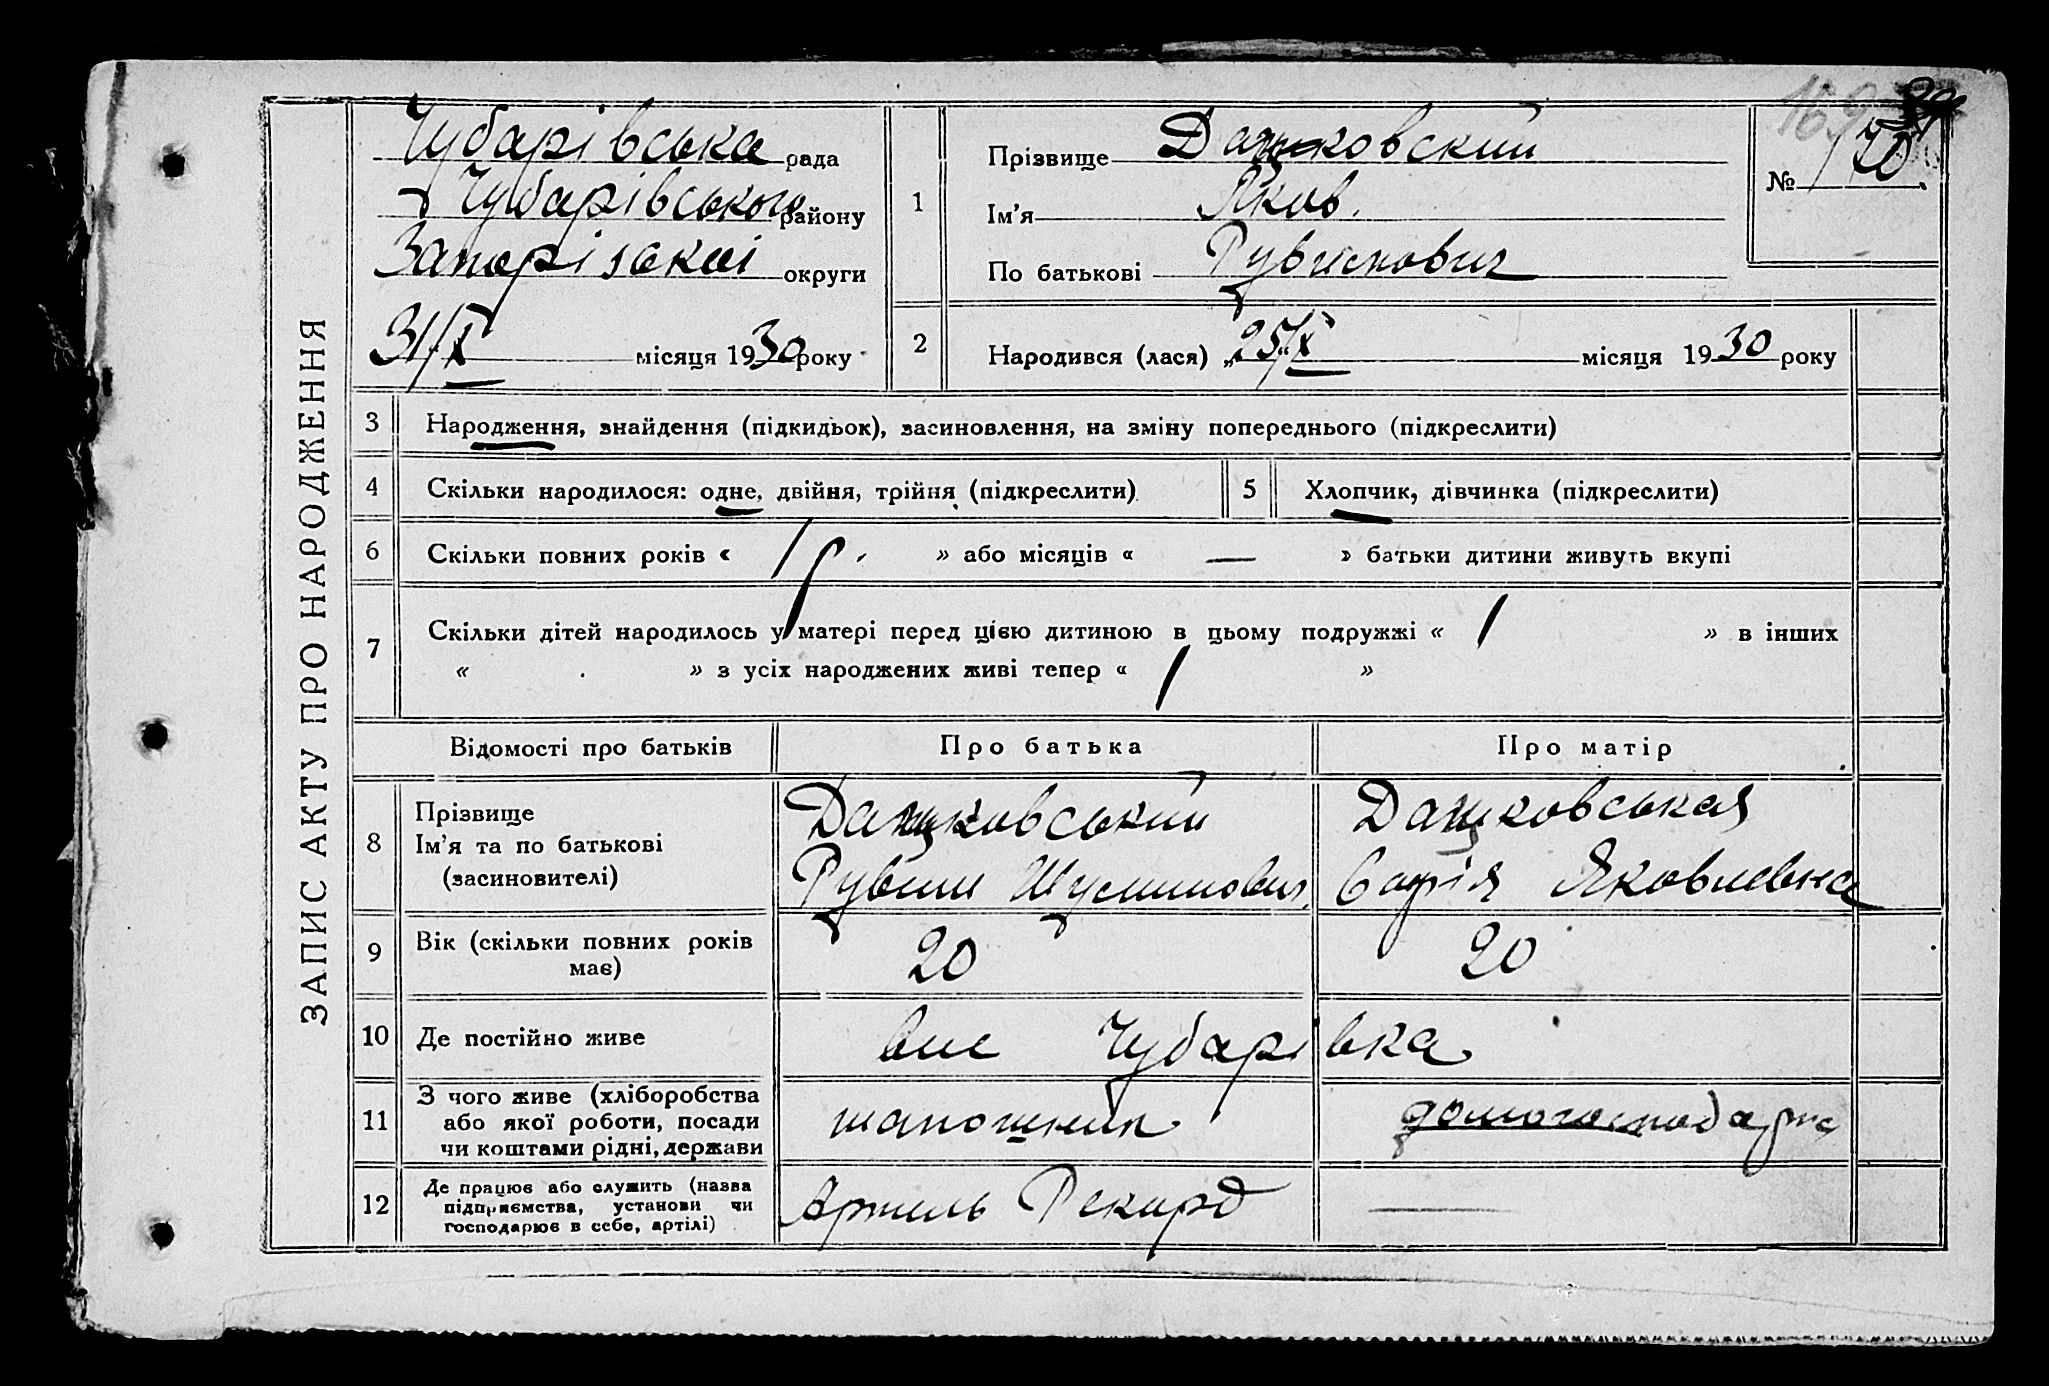 ЗАПИС АКТУ ПРО НАРОДЖЕННЯ
Чубарівська рада
Чубарівського району
Запорізької округи
31/X місяця 1930 року
1
Прізвище Дашковский
Ім'я Яков.
По батькові Рувимович
№ 170
2
Народився (лася) „25/X“ місяця 1930 року
3
Народження, знайдення (підкидьок), засиновлення, на зміну попереднього (підкреслити)
4
Скільки народилося: одне, двійня, трійня (підкреслити)
5
Хлопчик, дівчинка (підкреслити)
6
Скільки повних років « 1 р. » або місяців « — » батьки дитини живуть вкупі
7
Скільки дітей народилось у матері перед цією дитиною в цьому подружжі « 1 » в інших
« » з усіх народжених живі тепер « 1 »
Відомості про батьків
Про батька
Про матір
8
Прізвище
Ім'я та по батькові
(засиновителі)
Дашковський
Рувим
Дашковськая
Софія Яковлевна
9
Вік (скільки повних років
має)
20
20
10
Де постійно живе
Чубарівка
11
З чого живе (хліборобства
або якої роботи, посади
чи коштами рідні, держави
шапошник
домогосподарка
12
Де працює або служить (назва
підприємства, установи чи
господарює в себе, артілі)
Артиль Рекорд
—